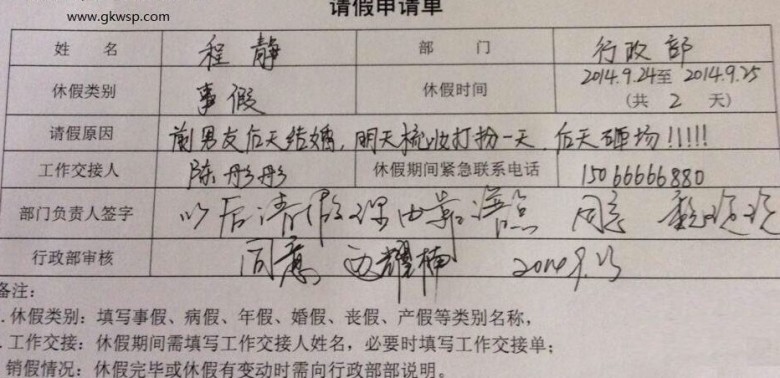 www.gkwsp.com
请假申请单
姓 名 程静 部 门 行政部
休假类别 事假 休假时间 2014.9.24至 2014.9.25
(共 2 天)
请假原因 前男友后天结婚,明天梳妆打扮一天,后天砸场!!!!!
工作交接人 陈彤彤 休假期间紧急联系电话 15066666880
部门负责人签字 以后请假理由 同意
行政部审核 同意 耀楠 2014.9.23
备注:
.休假类别:填写事假、病假、年假、婚假、丧假、产假等类别名称,
.工作交接:休假期间需填写工作交接人姓名,必要时填写工作交接单;
销假情况:休假完毕或休假有变动时需向行政部部说明。